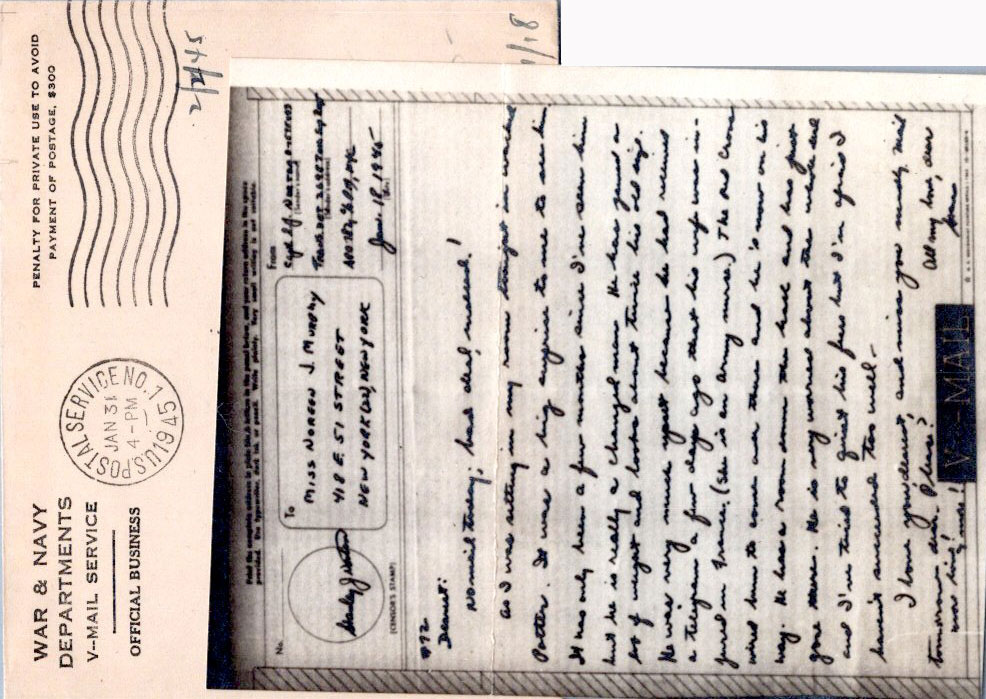 WAR & NAVY
DEPARTMENTS
V--MAIL SERVICE
OFFICIAL BUSINESS
U.S. POSTAL SERVICE NO. 1
JAN 31
4-PM
1945
PENALTY FOR PRIVATE USE TO AVOID
PAYMENT OF POSTAGE, $300
No.
(CENSOR'S STAMP)
To
MISS NOREEN J. MURPHY
418 E. 51 STREET
NEW YORK (22), NEW YORK
From
(Sender's name)
(Sender's address)
Jan. 18, 1945
(Date)
#72
Dearest:
No mail today; bad deal, indeed!
As I was sitting in my room tonight in walked
Potter. It was a big surprise to me to see him
It has only been a few months since I've seen him
but he is really a changed man. He has gained a
lot of weight and looks about twice his old age.
He was very much upset because he had received
a telegram a few days ago that his wife was in-
jured in France. (She is an army nurse.) The Red Cross
wired him to come over there and he is now on his
way. He has a room down the hall and has just
gone there. He is very worried about the whole deal
and I've tried to quiet his fears but I'm afraid I
haven't succeeded too well.
I love you, dearest, and miss you madly. Mail
tomorrow dear. Please!
All my love, dear
V···-MAIL